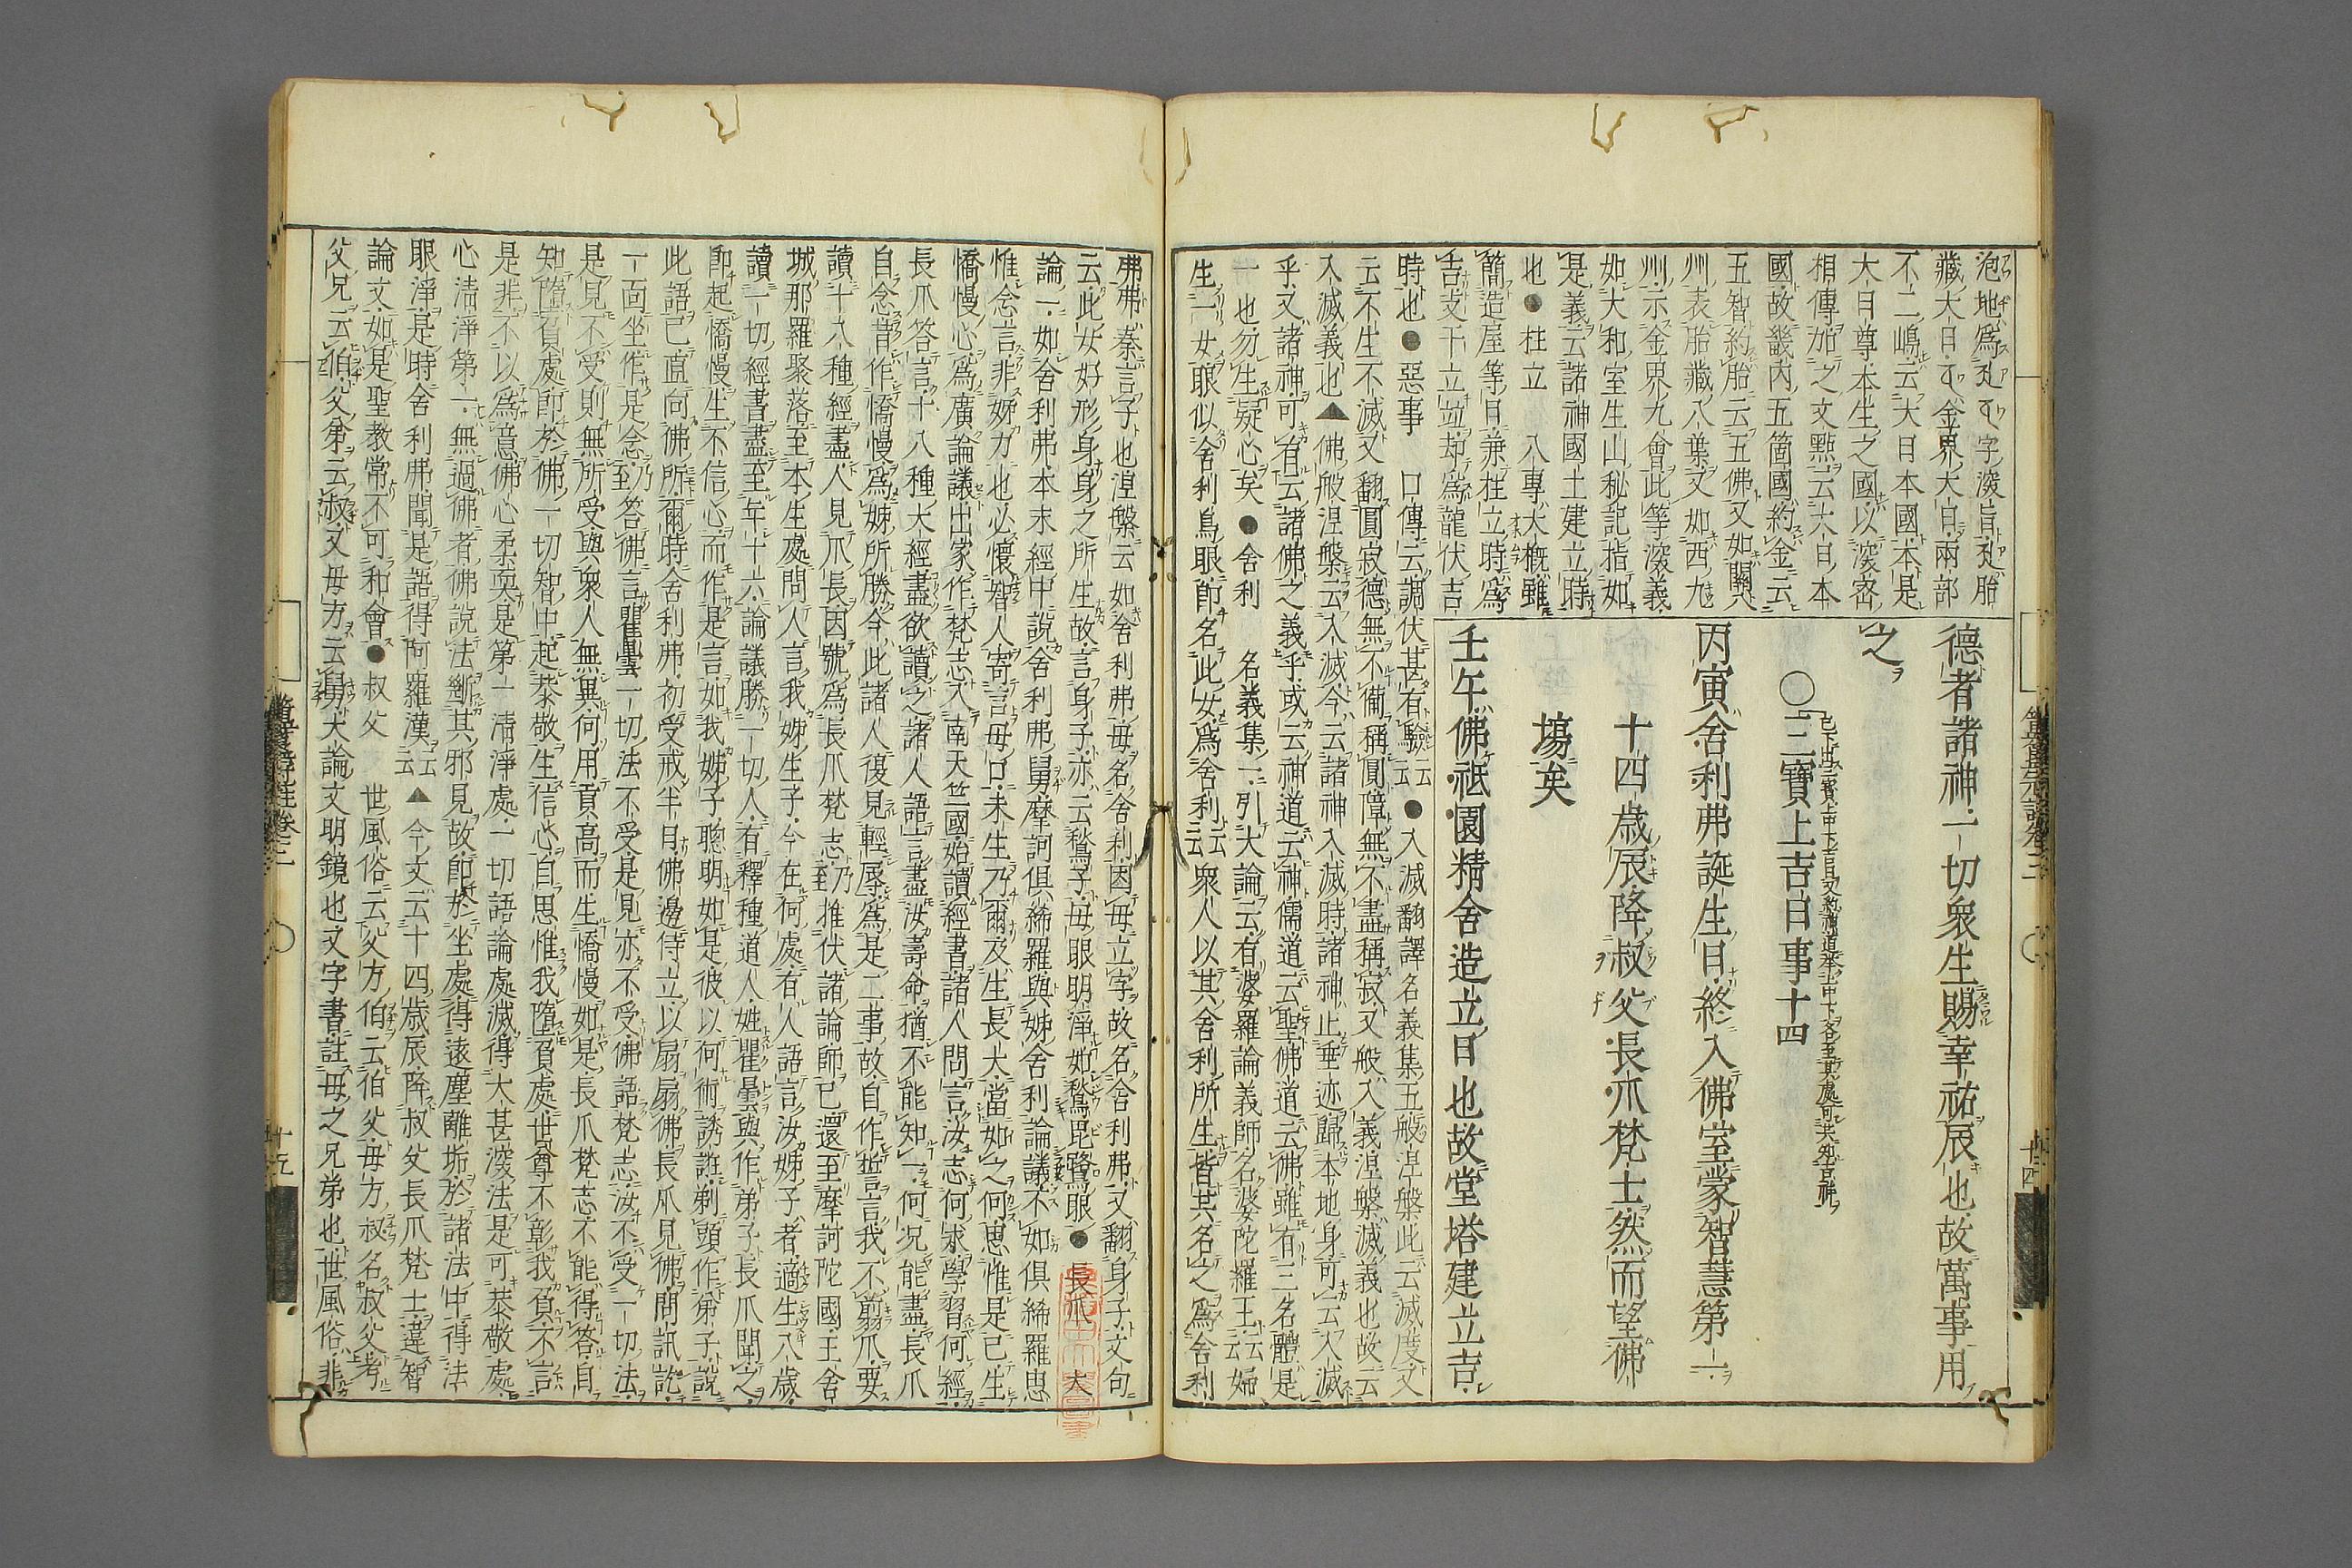 德者諸神一切衆生賜幸祐辰也故萬事用
之
〇三寶上吉日事十四
丙寅舍利弗誕生日終入佛室蒙智慧第一
十四歲辰降叔父長爪梵士然而望佛
場矣
壬午佛祇園精舍造立日也故堂塔建立吉
藏大日金界大日兩部
不二嶋云大日本國本是
大日尊本生之國以深密
相傳加之文點云大日本
國故畿内五箇國約金云
五智約胎云五佛又如關八
州表胎藏八葉又如西九
州示金界九會此等深義
如大和室生山秘記指如
是義云諸神國土建立時
也●柱立 八專大概雖
簡造屋等日兼柱立時爲
吉支干立竝却爲龍伏吉
時也●惡事 口傳云調伏甚有驗云云●入滅翻譯名義集五般涅槃此云滅度又
云不生不滅又翻圓寂德無不備稱圓障無不盡稱寂又般入義涅槃滅義也故云
入滅義也▲佛般涅槃云入滅今云諸神入滅時諸神止垂迹歸本地身可云入滅
乎又諸神可有云諸佛之義乎或云神道云神儒道云聖佛道云佛雖有三名體是
一也勿生疑心矣●舍利 名義集一引大論云有婆羅論義師名婆陀羅王云云婦
生一女眼似舍利鳥眼卽名此女爲舍利云云衆人以其舍利所生皆共名之爲舍利
弗弗秦言子也涅槃云如舍利弗母名舍利因母立字故名舍利弗又翻身子文句
云此女好形身身之所生故言身子亦云鶖子母眼明淨如鶖鷺眼●長爪 大
論一如舍利弗本末經中說舍利弗舅摩訶俱絺羅與姊舍利論議不如俱絺羅思
惟念言非姊力也必懷智人寄言母口未生乃爾及生長大當如之何思惟是已生
憍慢心爲廣論議出家作梵志入南天竺國始讀經書諸人問言汝志何求學習何經
長爪答言十八種大經盡欲讀之諸人語言盡汝壽命猶不能知一何况能盡長爪
自念昔作憍慢爲姊所勝今此諸人復見輕辱爲是二事故自作誓言我不剪爪要
讀十八種經盡人見爪長因號爲長爪梵志乃至推伏諸論師已還至摩訶陀國王舍
城那羅聚落至本生處問人言我姊生子今在何處有人語言汝姊子者適生八歲
讀一切經書盡至年十六論議勝一切人有釋種道人姓瞿曇與作弟子長爪聞之
卽起憍慢生不信心而作是言如我姊子聰明如是彼以何術誘誑剃頭作弟子說
此語已直向佛所爾時舍利弗初受戒半月佛邊侍立以扇扇佛長爪見佛問訊訖
一面坐作是念乃至答佛言瞿曇一切法不受是見亦不受佛語梵志汝不受一切法
是見不受則無所受與衆人無異何用貢高而生憍慢如是長爪梵志不能得答自
知墮負處卽於佛一切智中起恭敬生信心自思惟我墮負處世尊不彰我負不言
是非不以爲意佛心柔耎是第一清淨處一切語論處滅得大甚深法是可恭敬處
心清淨第一無過佛者佛說法斷其邪見故卽於坐處得遠塵離垢於諸法中得法
眼淨是時舍利弗聞是語得阿羅漢云云▲今文云十四歲辰降叔父長爪梵士違智
論文如是聖教常不可和會●叔父 世風俗云父方伯云伯父母方叔名叔父考
父兄云伯父弟云叔父母方云舅大論文明鏡也文字書註母之兄弟也世風俗非